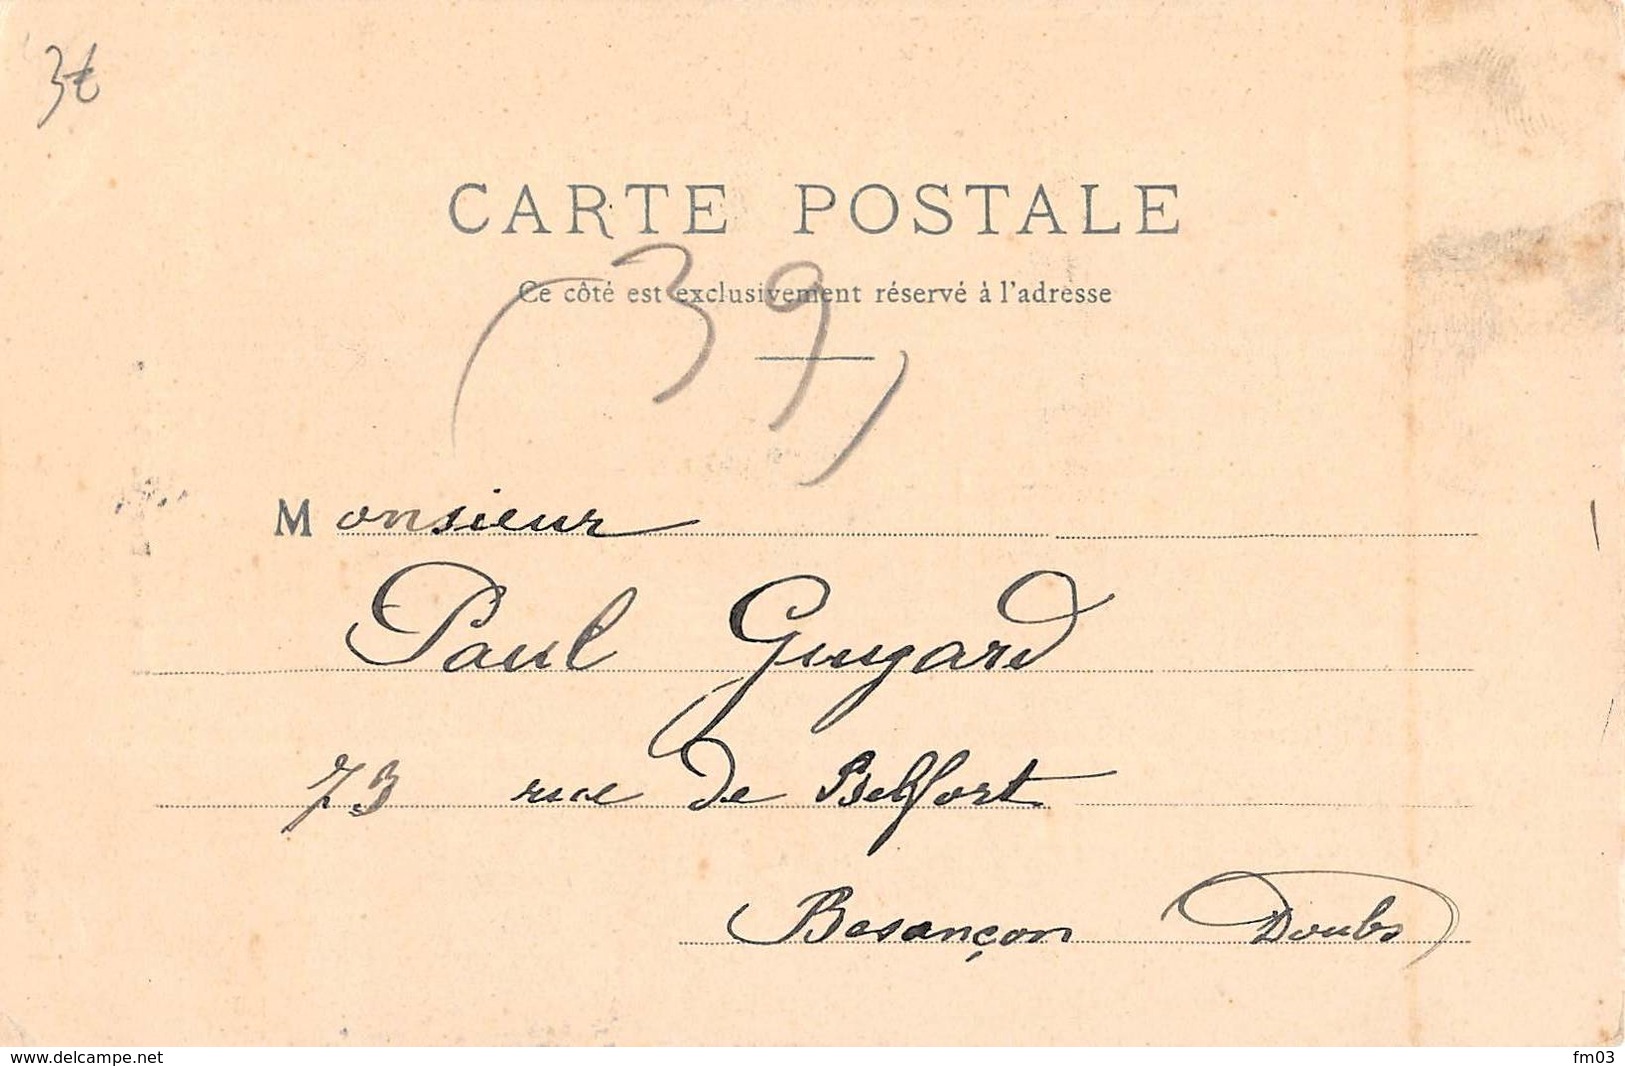 3€
CARTE POSTALE
Ce côté est exclusivement réservé à l'adresse
(39)
Monsieur
Paul Guyard
73 rue de Belfort
Besançon Doubs
www.delcampe.net
fm03